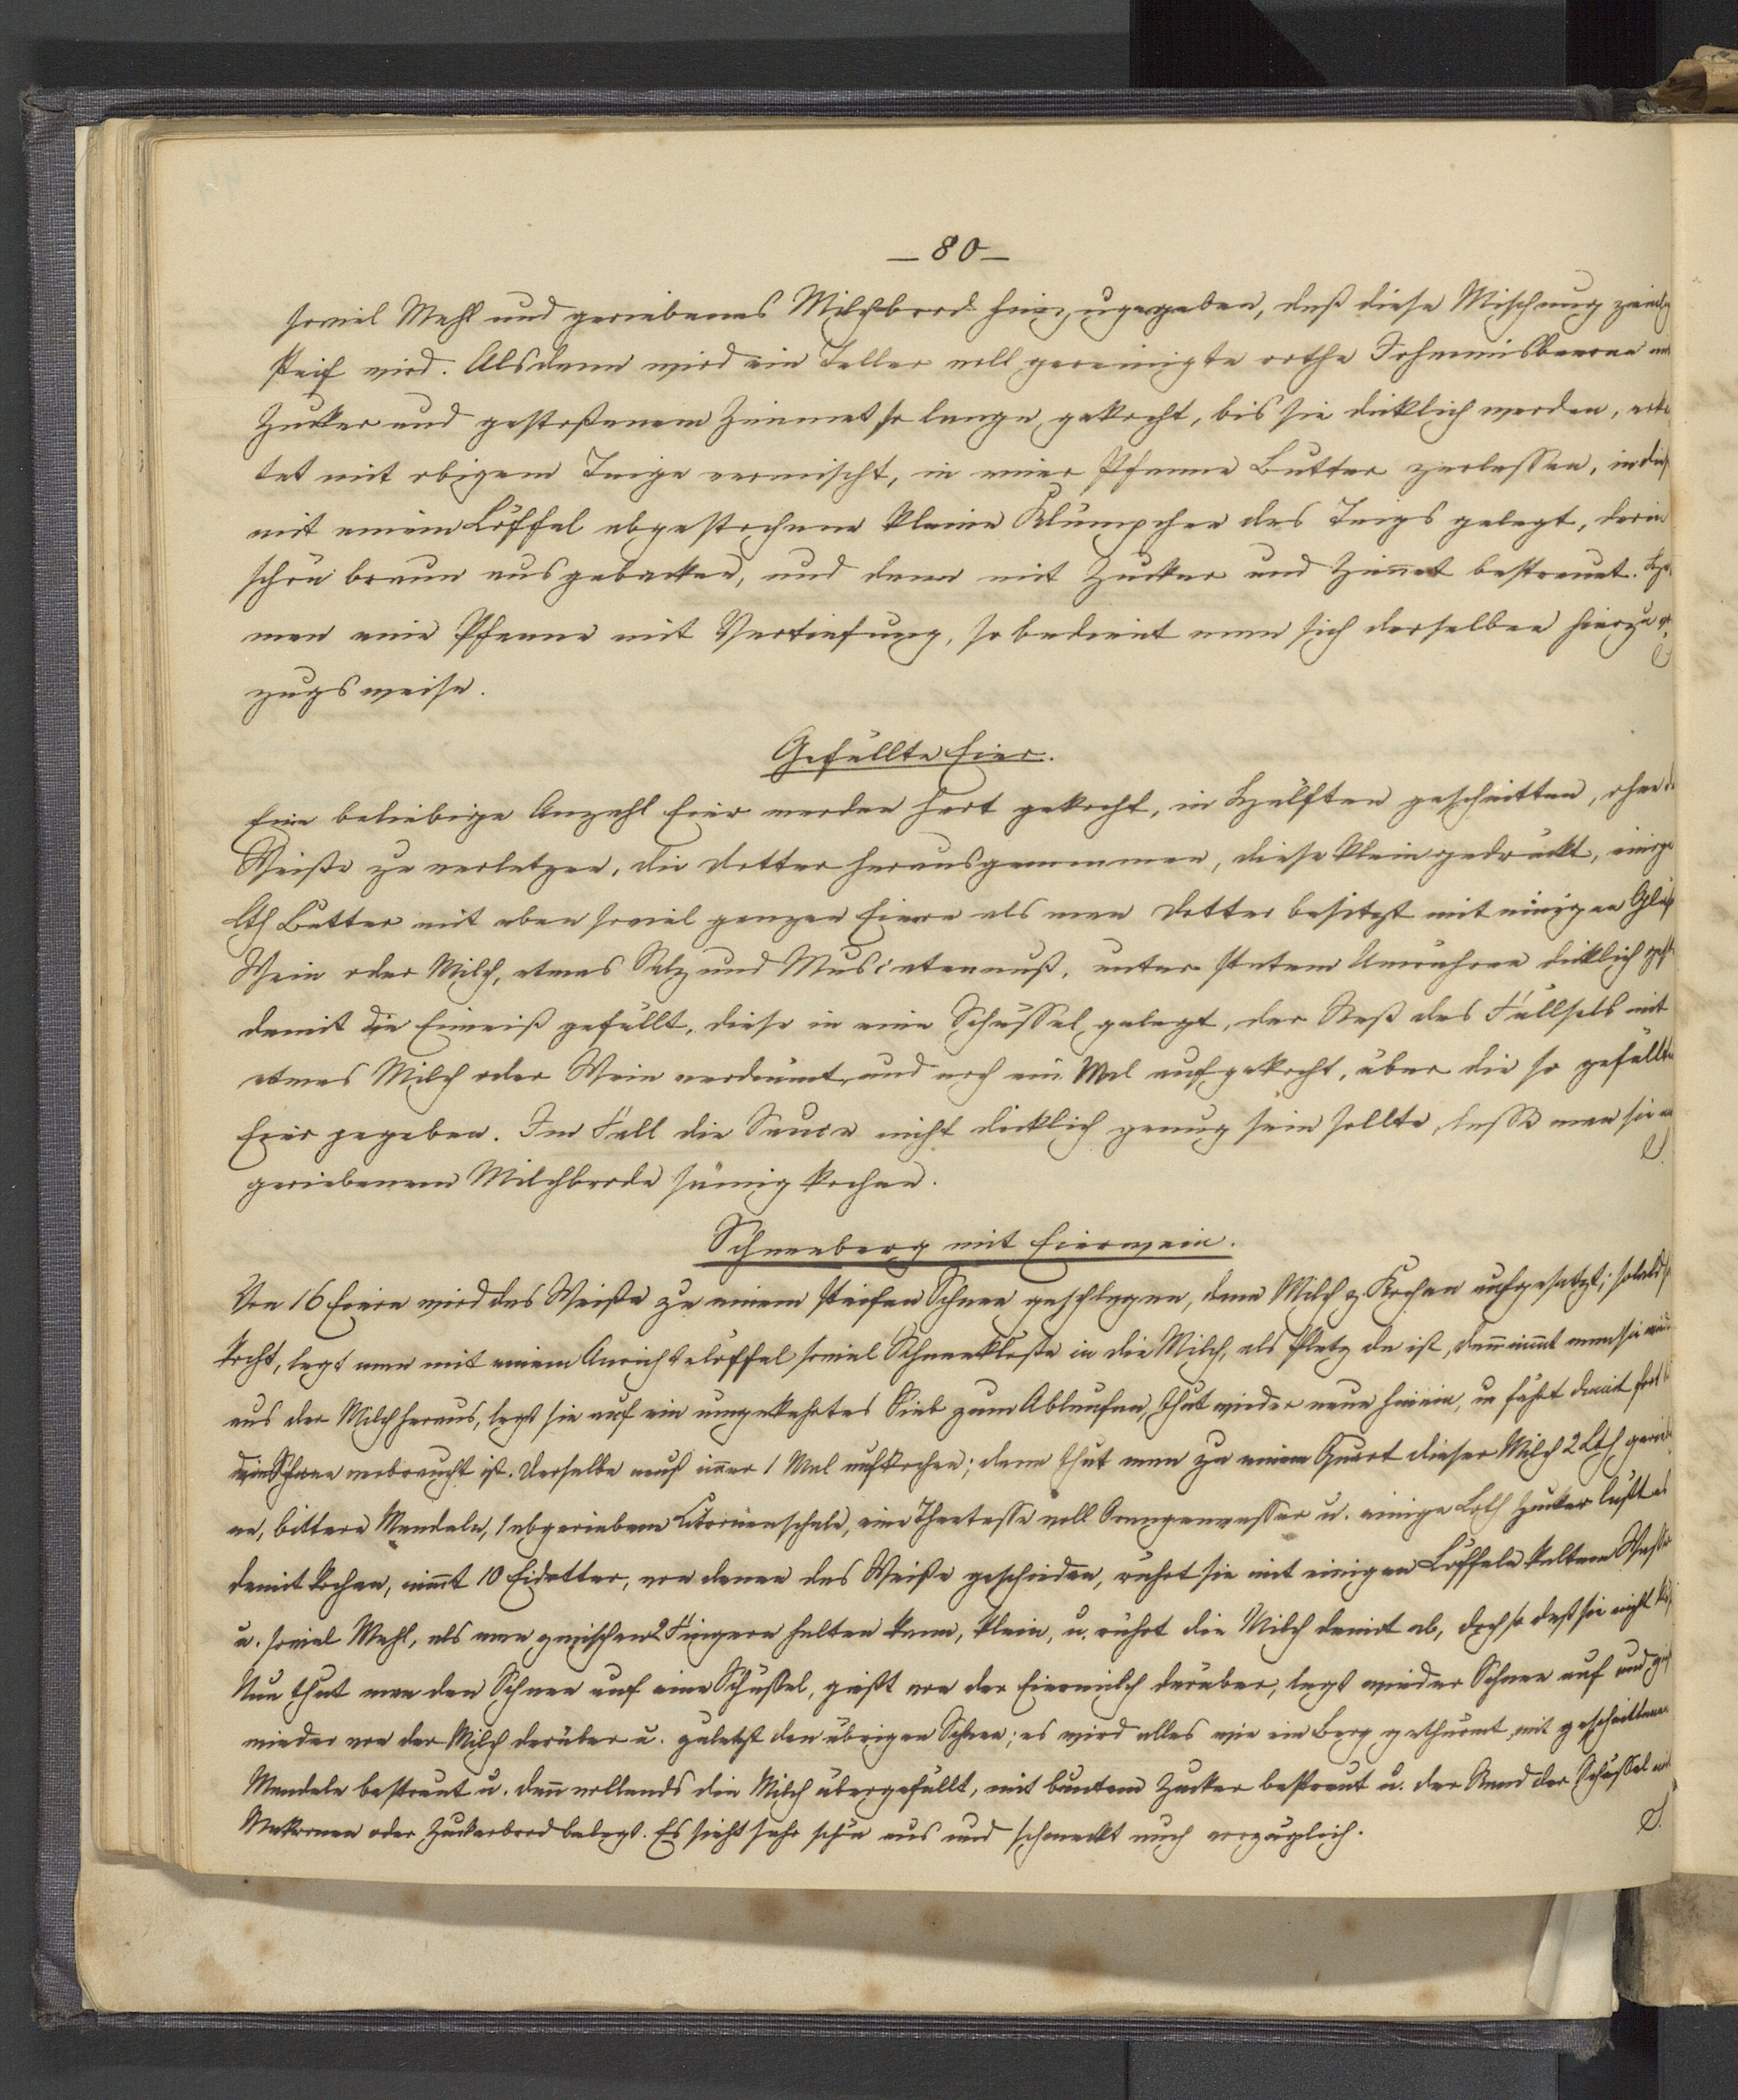 — 80 —
soviel Mehl und geriebenes Milchbrod hinzugegeben, daß diese Mischung
steif wird. Alsdann wird ein Teller voll gereinigte rothe Johannisbeeren
Zucker und gestoßenem Zimmet so lange gekocht, bis sie dicklich werden,
tet mit obigem Teige vermischt, in einer Pfanne Butter zerlassen, in
mit einem Löffel abgestochene kleine Klümpchen des Teigs gelegt, darin
schön braun ausgebacken, und dann mit Zucker und Zim̅et bestreuet.
man eine Pfanne mit Vertiefung, so bedient man sich derselben hierzu
zugsweise.
Gefüllte Eier.
Eine beliebige Anzahl Eier werden hart gekocht, in Hälften geschnitten, ohne
Weiße zu verletzen, die Dotter herausgenommen, diese klein gedrückt, einige
Lth Butter mit eben soviel ganzen Eiern als man Dotter besitzt mit einigen
Wein oder Milch, etwas Salz und Muscatennuß, unter stetem Umrühren dicklich
damit die Eiweiß gefüllt, diese in eine Schüssel gelegt, der Rest des Füllsels mit
etwas Milch oder Wein verdünnt, und noch ein Mal aufgekocht, über die so gefüllten
Eier gegeben. Im Fall die Sauce nicht dicklich genug sein sollte, lasse man sie
geriebenem Milchbrode sämig kochen.
Schneeberg mit Eierwein.
Von 16 Eiern wird das Weiße zu einem steifen Schnee geschlagen, dann Milch z. Kochen aufgesetzt; sobald
kocht, legt man mit einem Anrichtelöffel soviel Schneeklöße in die Milch, als Platz da ist, dan̅ nim̅t man sie
aus der Milch heraus, legt sie auf ein umgekehrtes Sieb zum Ablaufen, thut wieder neue hinein, u fährt damit fort
Schnee verbraucht ist. Derselbe muß im̅er 1 Mal aufkochen; dann thut man zu einem Quart dieser Milch 2 Lth
ne, bittere Mandeln, 1 abgeriebene Citronenschale, eine Theetasse voll Orangenwasser u. einige Loth Zucker läßt es
damit kochen, nim̅t 10 Eidotter, von denen das Weiße geschieden, rührt sie mit einigen Löffeln kaltem Wasser
u. soviel Mehl, als man zwischen 2 Fingern halten kann, klein, u. rührt die Milch damit ab, doch so daß sie nicht
Nun thut man den Schnee auf eine Schüssel, gießt von der Eiermilch darüber, legt wieder Schnee auf und
wieder von der Milch darüber u. zuletzt den übrigen Schnee; es wird alles wie ein Berg gethürmt mit geschnittenen
Mandeln bestreut u. dan̅ vollends die Milch übergefüllt, mit buntem Zucker bestreut u. der Rand der Schüssel mit
Makronen oder Zuckerbrod belegt. Es sieht sehr schön aus und schmeckt auch vorzüglich.